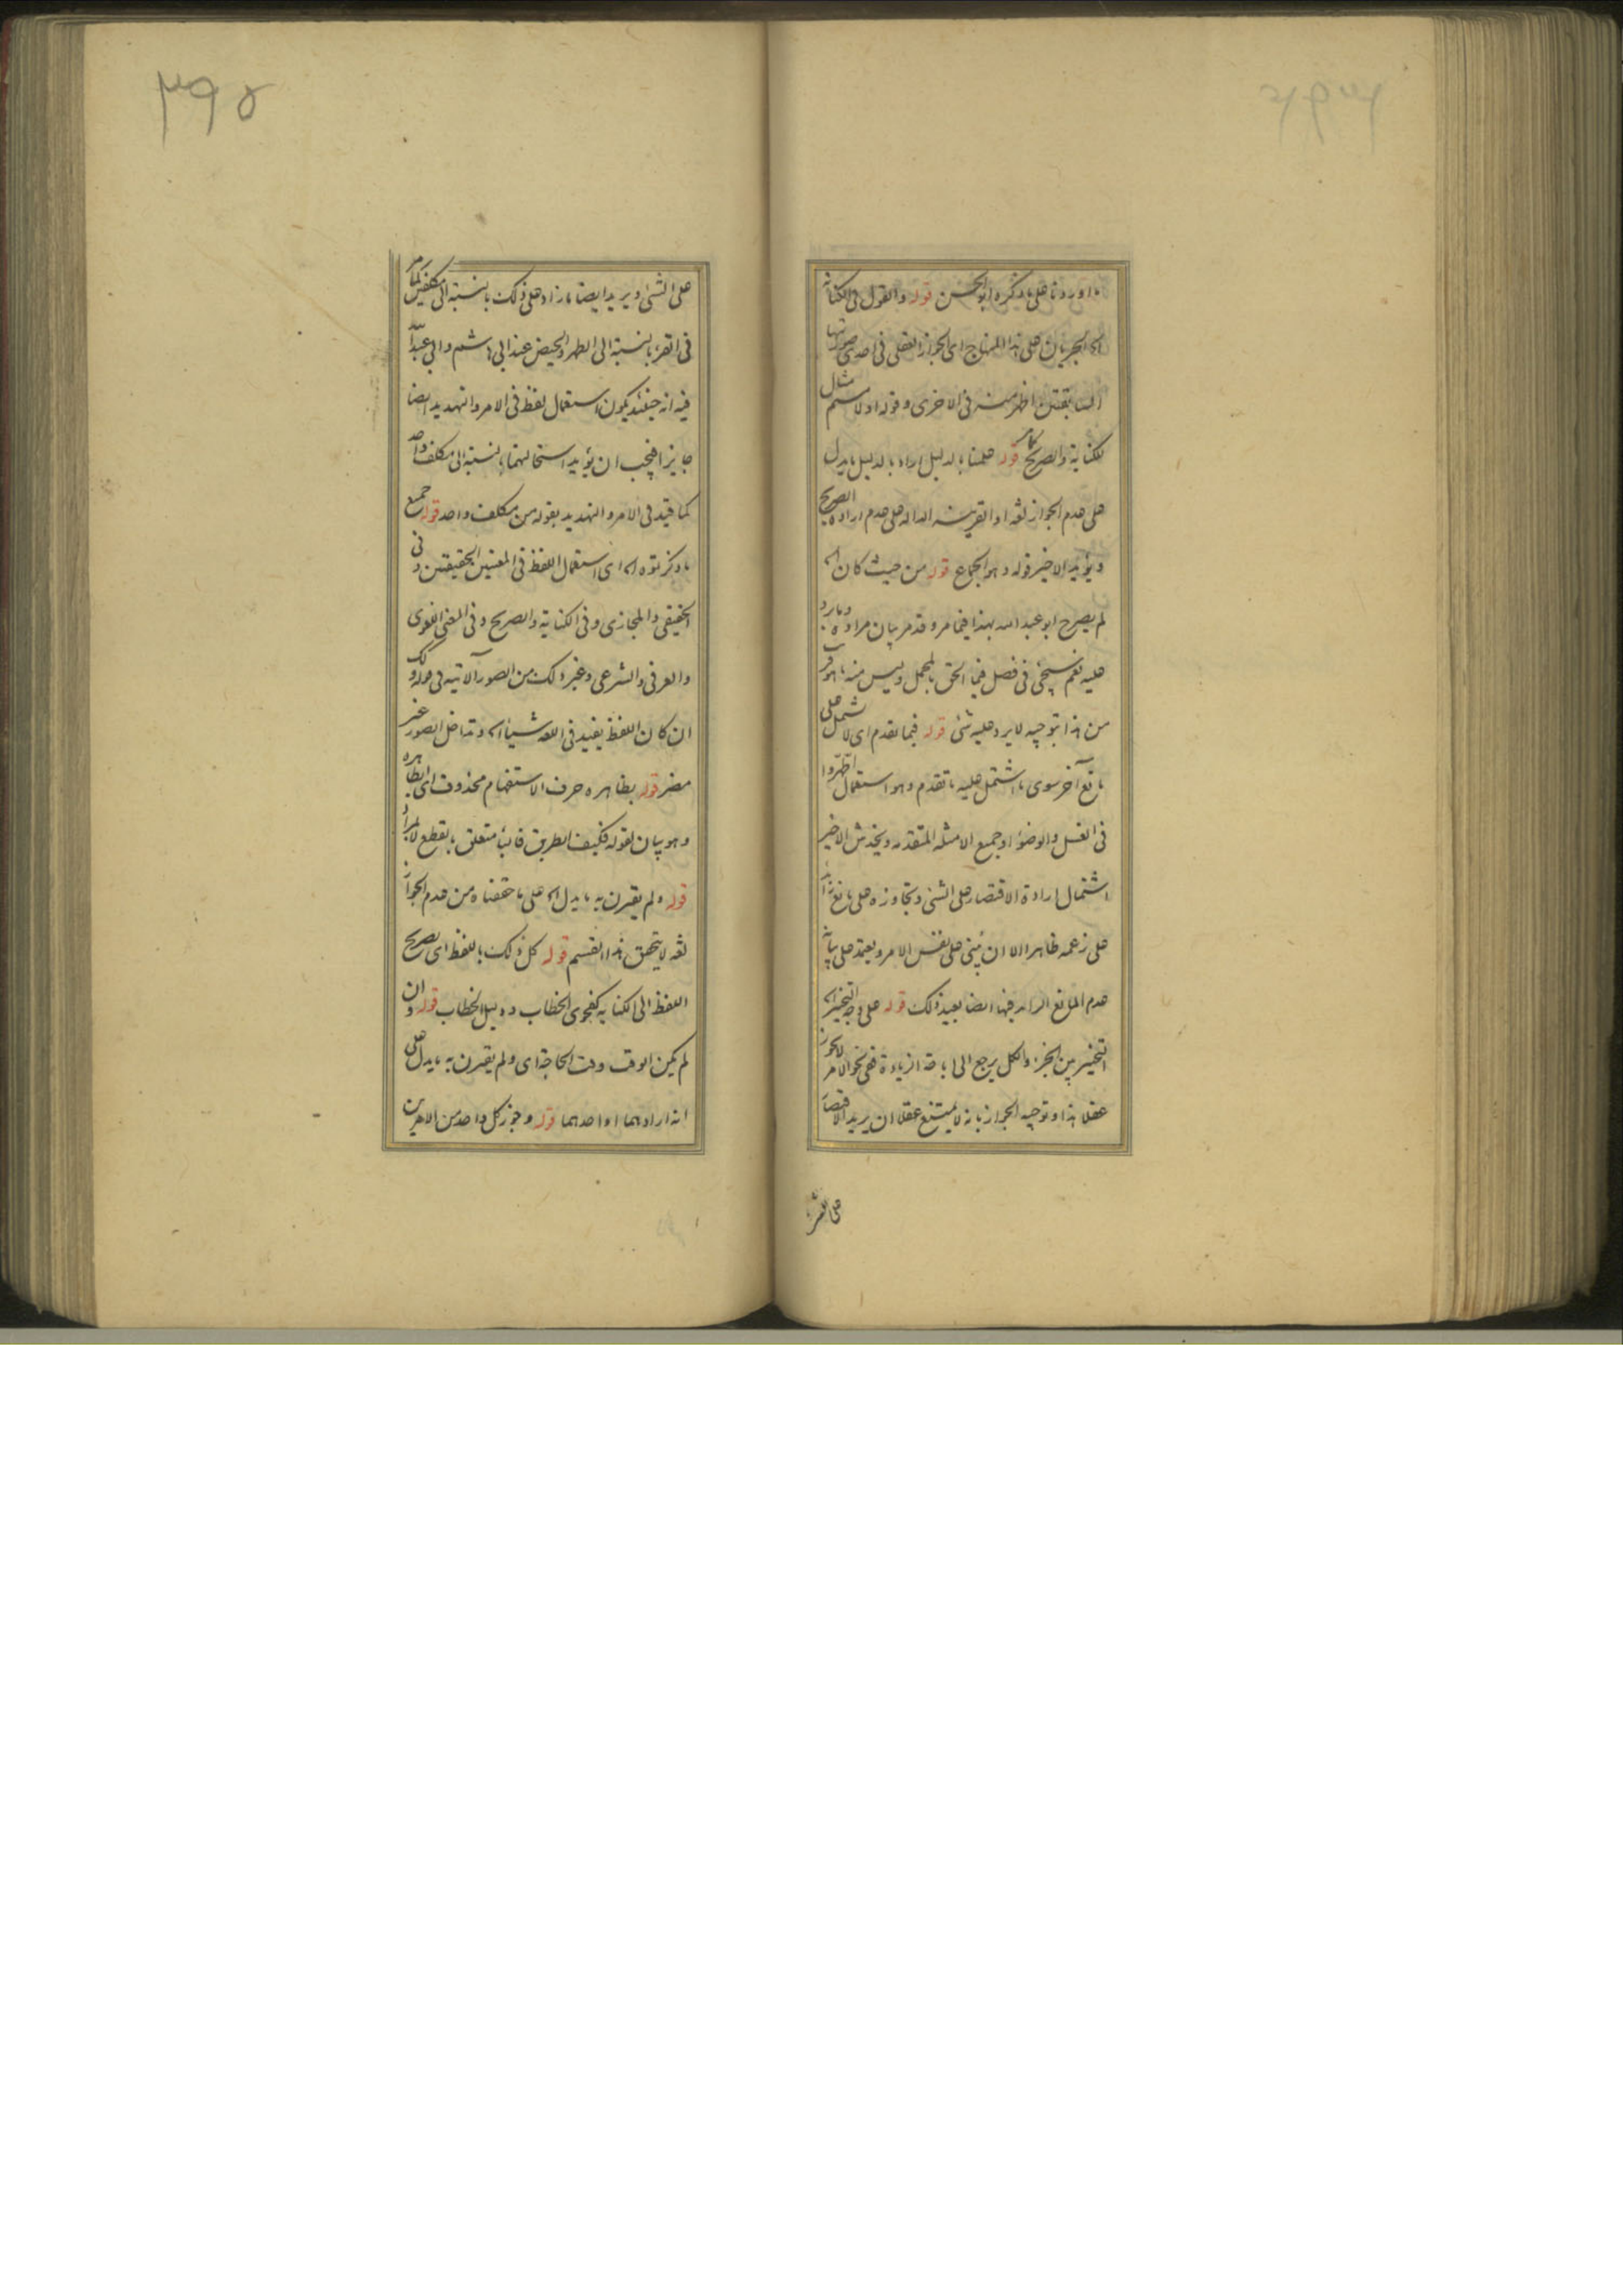 ما اوردنا على ما ذكره ابو الحسن قوله والقول فى الكناية
اه الجريان على هذا المنهاج اى الجواز العقلى فى احدى صورتها
السابقتين اظهر منه فى الاخرى وقوله اولامستم مثال
لكناية والصريح كما مر قوله علمنا بالدليل اراد بالدليل ما يدل
على عدم الجواز لغة او القرينة الدالة على عدم ارادة الصريح
ويؤيد الاخير قوله وهو الاجماع قوله من حيث كان اه
لم يصرح ابو عبد الله بهذا فيما مر وقد مر بيان مراده وما يرد
عليه نعم سيجئ فى فصل فيما الحق بالمجمل وليس منه ما هو قريب
من هذا بتوجيه لا يرد عليه شئ قوله فيما تقدم اى لا يشمل على
مانع آخر سوى ما اشتمل عليه ما تقدم وهو استعمال اطهروا
فى الغسل والوضوء او جميع الامثلة المتقدمة ويخدش الاخير
اشتمال ارادة الاقتصار على الشئ وتجاوزه على مانع زائد
على زعمه ظاهرا الا ان يبنى على نفس الامر ويعتمد على بيانه
عدم المانع الزائد فيها ايضا بعيد ذلك قوله على وجه التخيير اه
التخيير بين الجزء والكل يرجع الى اباحة الزيادة ففى نحو الامر لا يجوز
عقلا هذا وتوجيه الجواز بانه لا يمتنع عقلا ان يريد الاقتصار
على الشئ
٣٩٥
على الشئ ويريد ايضا ما زاد على ذلك بالنسبة الى مكلفين كما مر
فى القرء بالنسبة الى الطهر والحيض عند ابى هاشم وابى عبد الله
فيه انه حينئذ يكون استعمال لفظ فى الامر والتهديد ايضا
جايزا فيجب ان يؤيد استحالتهما بالنسبة الى مكلف واحد
كما قيد فى الامر والتهديد بقوله من مكلف واحد قوله جميع
ما ذكرتوه اه اى استعمال اللفظ فى المعنيين الحقيقتين وفى
الحقيقى والمجازى وفى الكناية والصريح وفى المعنى اللغوى
والعرفى والشرعى وغير ذلك من الصور الآتية فى قوله ولك
ان كان اللفظ يفيد فى اللغة شيئا اه وتداخل الصور غير
مضر قوله بظاهره حرف الاستفهام محذوف اى ابظاهره
وهو بيان لقوله فكيف الطريق قالبا متعلق بقطع لا بمراد
قوله ولم يقترن به ما يدل اه على ما حققناه من عدم الجواز
لغة لا يتحقق هذا القسم قوله كل ذلك باللفظ اى بصريح
اللفظ الى الكناية كفحوى الخطاب ودليل الخطاب قوله وان
لم يكن الوقت وقت الحاجة اى ولم يقترن به ما يدل على
انه ارادهما او احدهما قوله وجوز كل واحد من الامرين